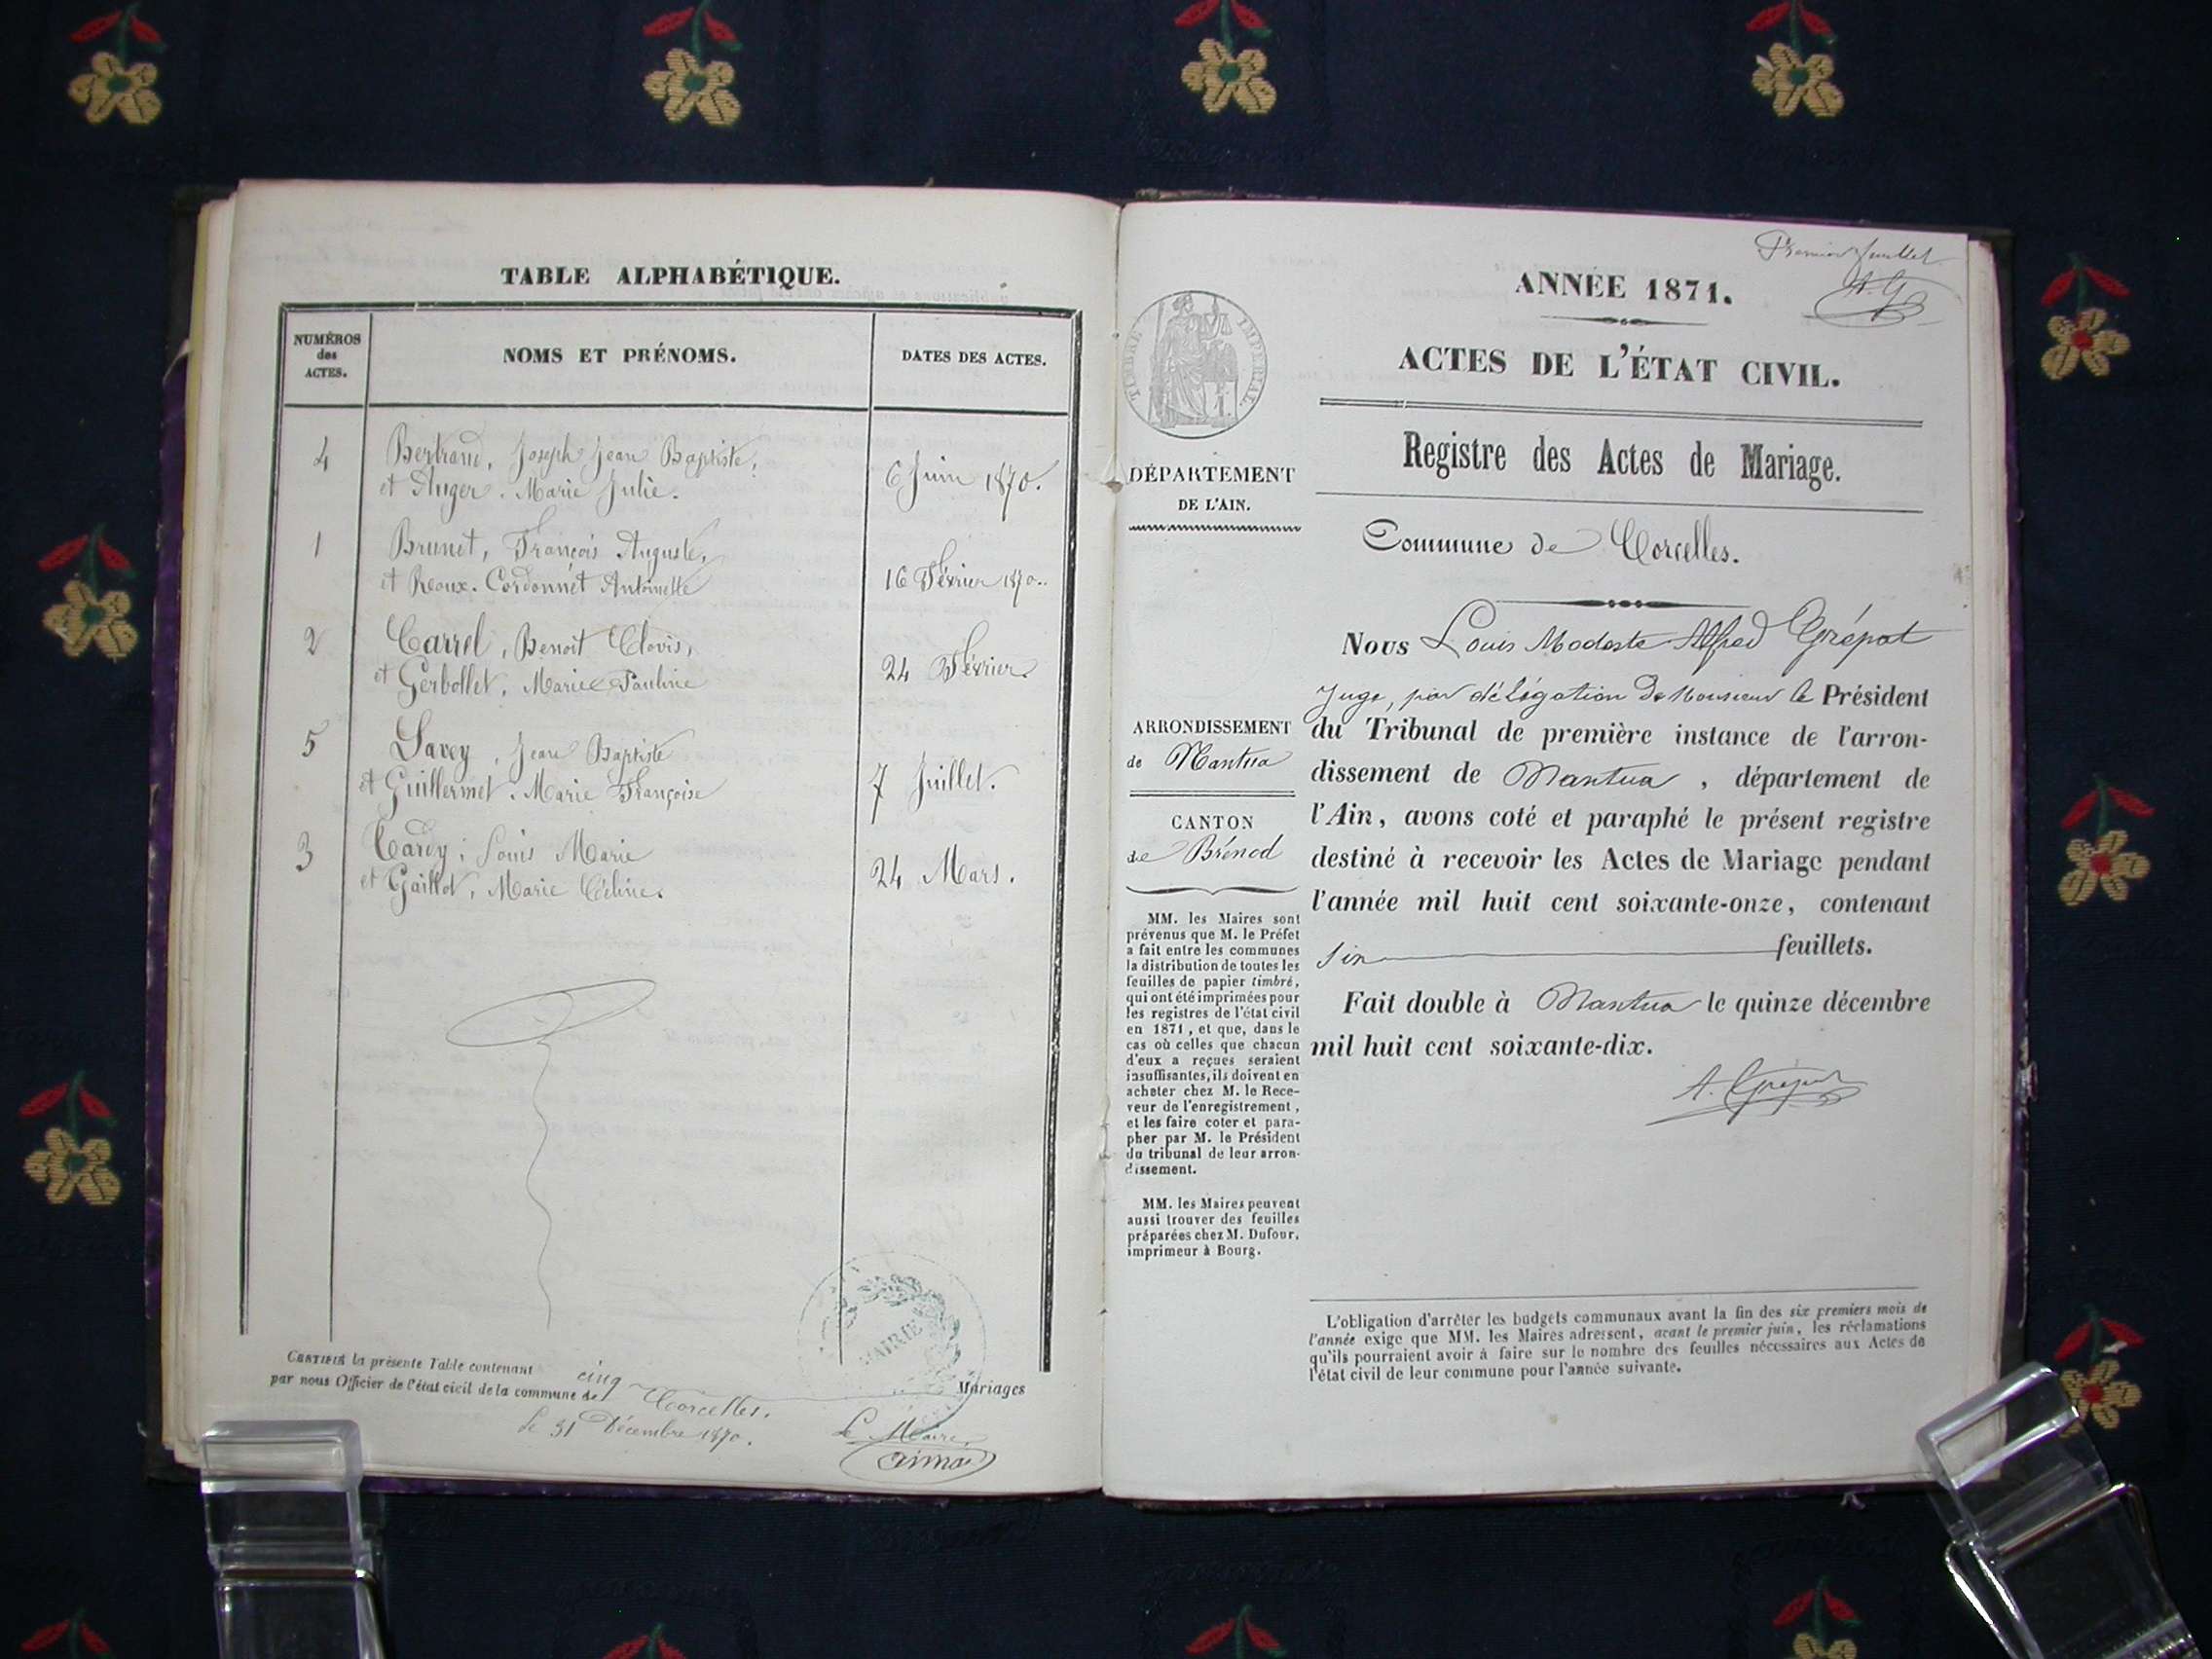 TABLE ALPHABÉTIQUE.
NUMÉROS
des
ACTES.
NOMS ET PRÉNOMS.
DATES DES ACTES.
4 Bertrand, Joseph Jean Baptiste,
et Auger. Marie Julie. 6 Juin 1870.
1 Brunet, François Auguste,
et Reoux-Cordonnet Antoinette 16 Février 1870.
2 Carrel, Benoit Clovis,
et Gerbollet, Marie Pauline 24 Février.
5 Savey, Jean Baptiste
et Guillermet. Marie Françoise 7 Juillet.
3 Tardy, Louis Marie
et Gaillot, Marie Céline. 24 Mars.
CERTIFIÉ la présente Table contenant cinq Mariages
par nous Officier de l'état civil de la commune de Corcelles.
Le 31 Décembre 1870.
Le Maire,
MAIRIE
Premier feuillet
A. G
ANNÉE 1871.
ACTES DE L'ÉTAT CIVIL.
Registre des Actes de Mariage.
Commune de Corcelles.
TIMBRE IMPERIAL.
DÉPARTEMENT
DE L'AIN.
ARRONDISSEMENT
de Nantua
CANTON
de Brénod
MM. les Maires sont
prévenus que M. le Préfet
a fait entre les communes
la distribution de toutes les
feuilles de papier timbré,
qui ont été imprimées pour
les registres de l'état civil
en 1871, et que, dans le
cas où celles que chacun
d'eux a reçues seraient
insuffisantes, ils doivent en
acheter chez M. le Rece-
veur de l'enregistrement,
et les faire coter et para-
pher par M. le Président
du tribunal de leur arron-
dissement.
MM. les Maires peuvent
aussi trouver des feuilles
préparées chez M. Dufour,
imprimeur à Bourg.
Nous Louis Modeste Alfred Grépat
Juge, par délégation de Monsieur le Président
du Tribunal de première instance de l'arron-
dissement de Nantua, département de
l'Ain, avons coté et paraphé le présent registre
destiné à recevoir les Actes de Mariage pendant
l'année mil huit cent soixante-onze, contenant
six feuillets.
Fait double à Nantua le quinze décembre
mil huit cent soixante-dix.
A. Grépat
L'obligation d'arrêter les budgets communaux avant la fin des six premiers mois de
l'année exige que MM. les Maires adressent, avant le premier juin, les réclamations
qu'ils pourraient avoir à faire sur le nombre des feuilles nécessaires aux Actes de
l'état civil de leur commune pour l'année suivante.